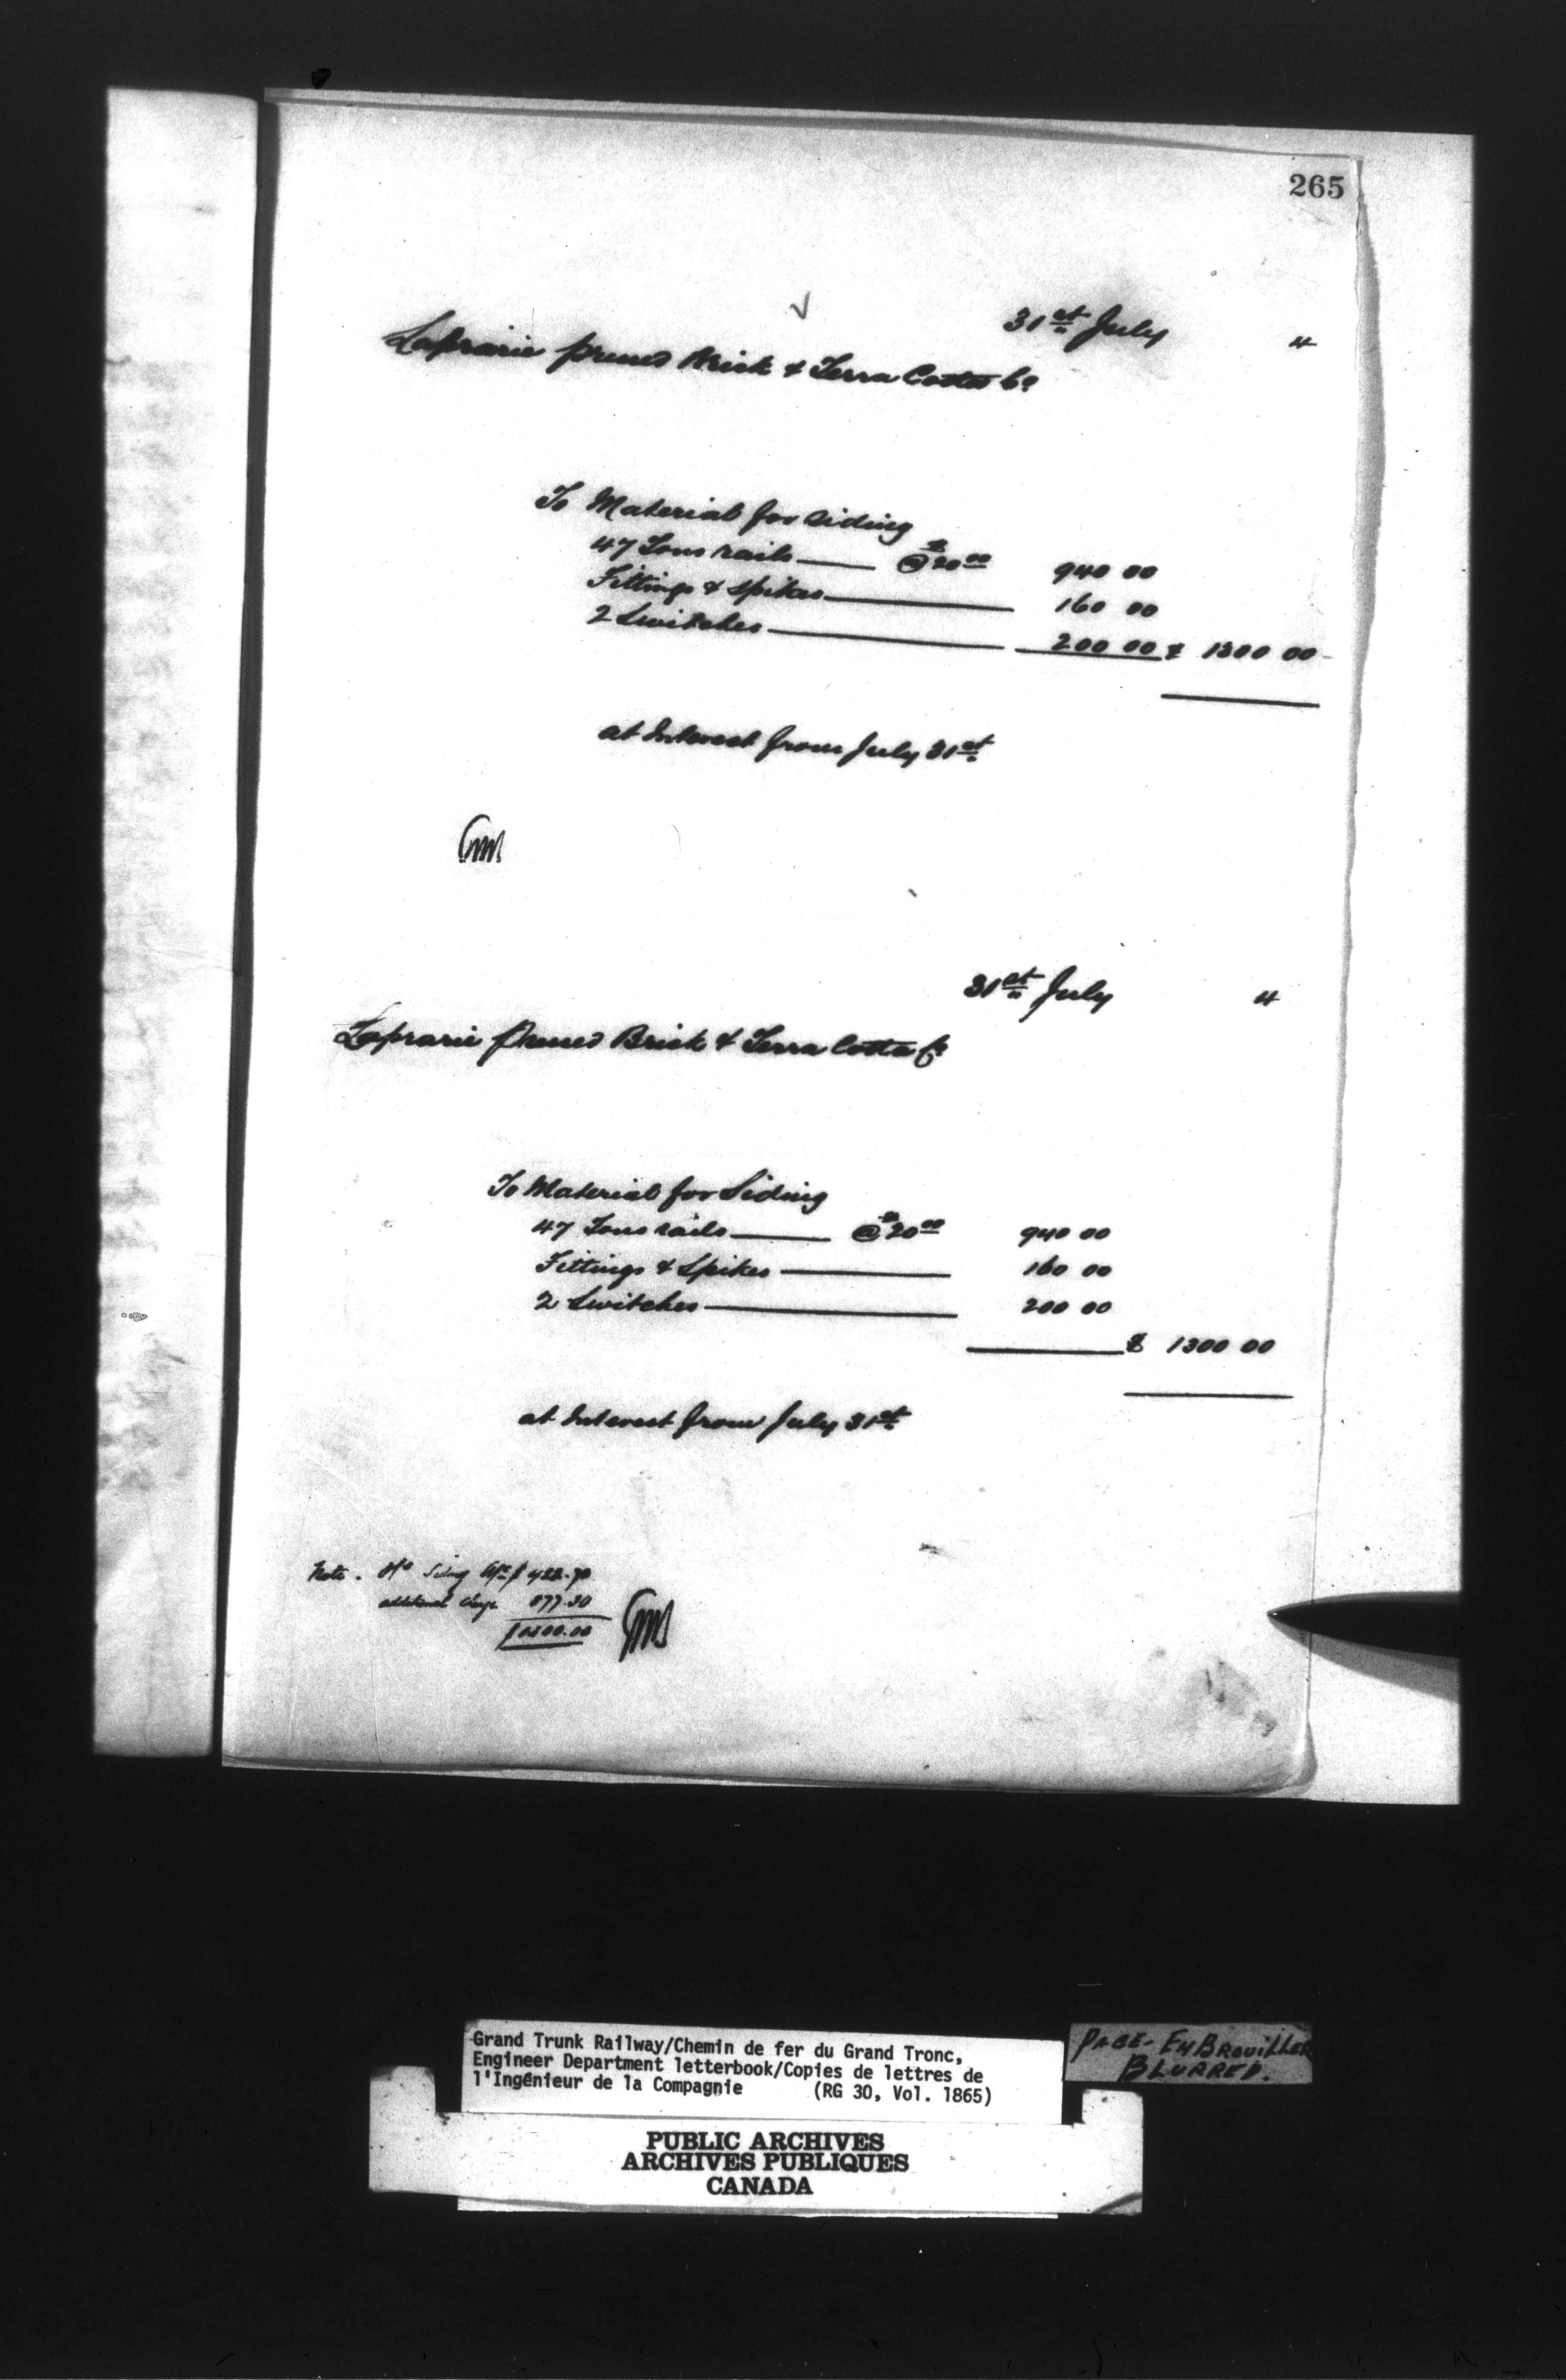 265
31st July 4
Laprarie Pressed Brick & Terra Cotta Co
To Material for Siding
47 Tons rails @ $20.00 940 00
Fittings & Spikes 160 00
2 Switches 200 00 $ 1300 00
at Interest from July 31st
31st July 4
Laprarie Pressed Brick & Terra Cotta Co
To Material for Siding
47 Tons rails @ $20.00 940 00
Fittings & Spikes 160 00
2 Switches 200 00
$ 1300 00
at Interest from July 31st
Note. Siding $422.70
additional charge 877.30
$1300.00
Grand Trunk Railway/Chemin de fer du Grand Tronc,
Engineer Department letterbook/Copies de lettres de
l'Ingénieur de la Compagnie (RG 30, Vol. 1865)
PAGE - EMBROUILLER
BLURRED.
PUBLIC ARCHIVES
ARCHIVES PUBLIQUES
CANADA